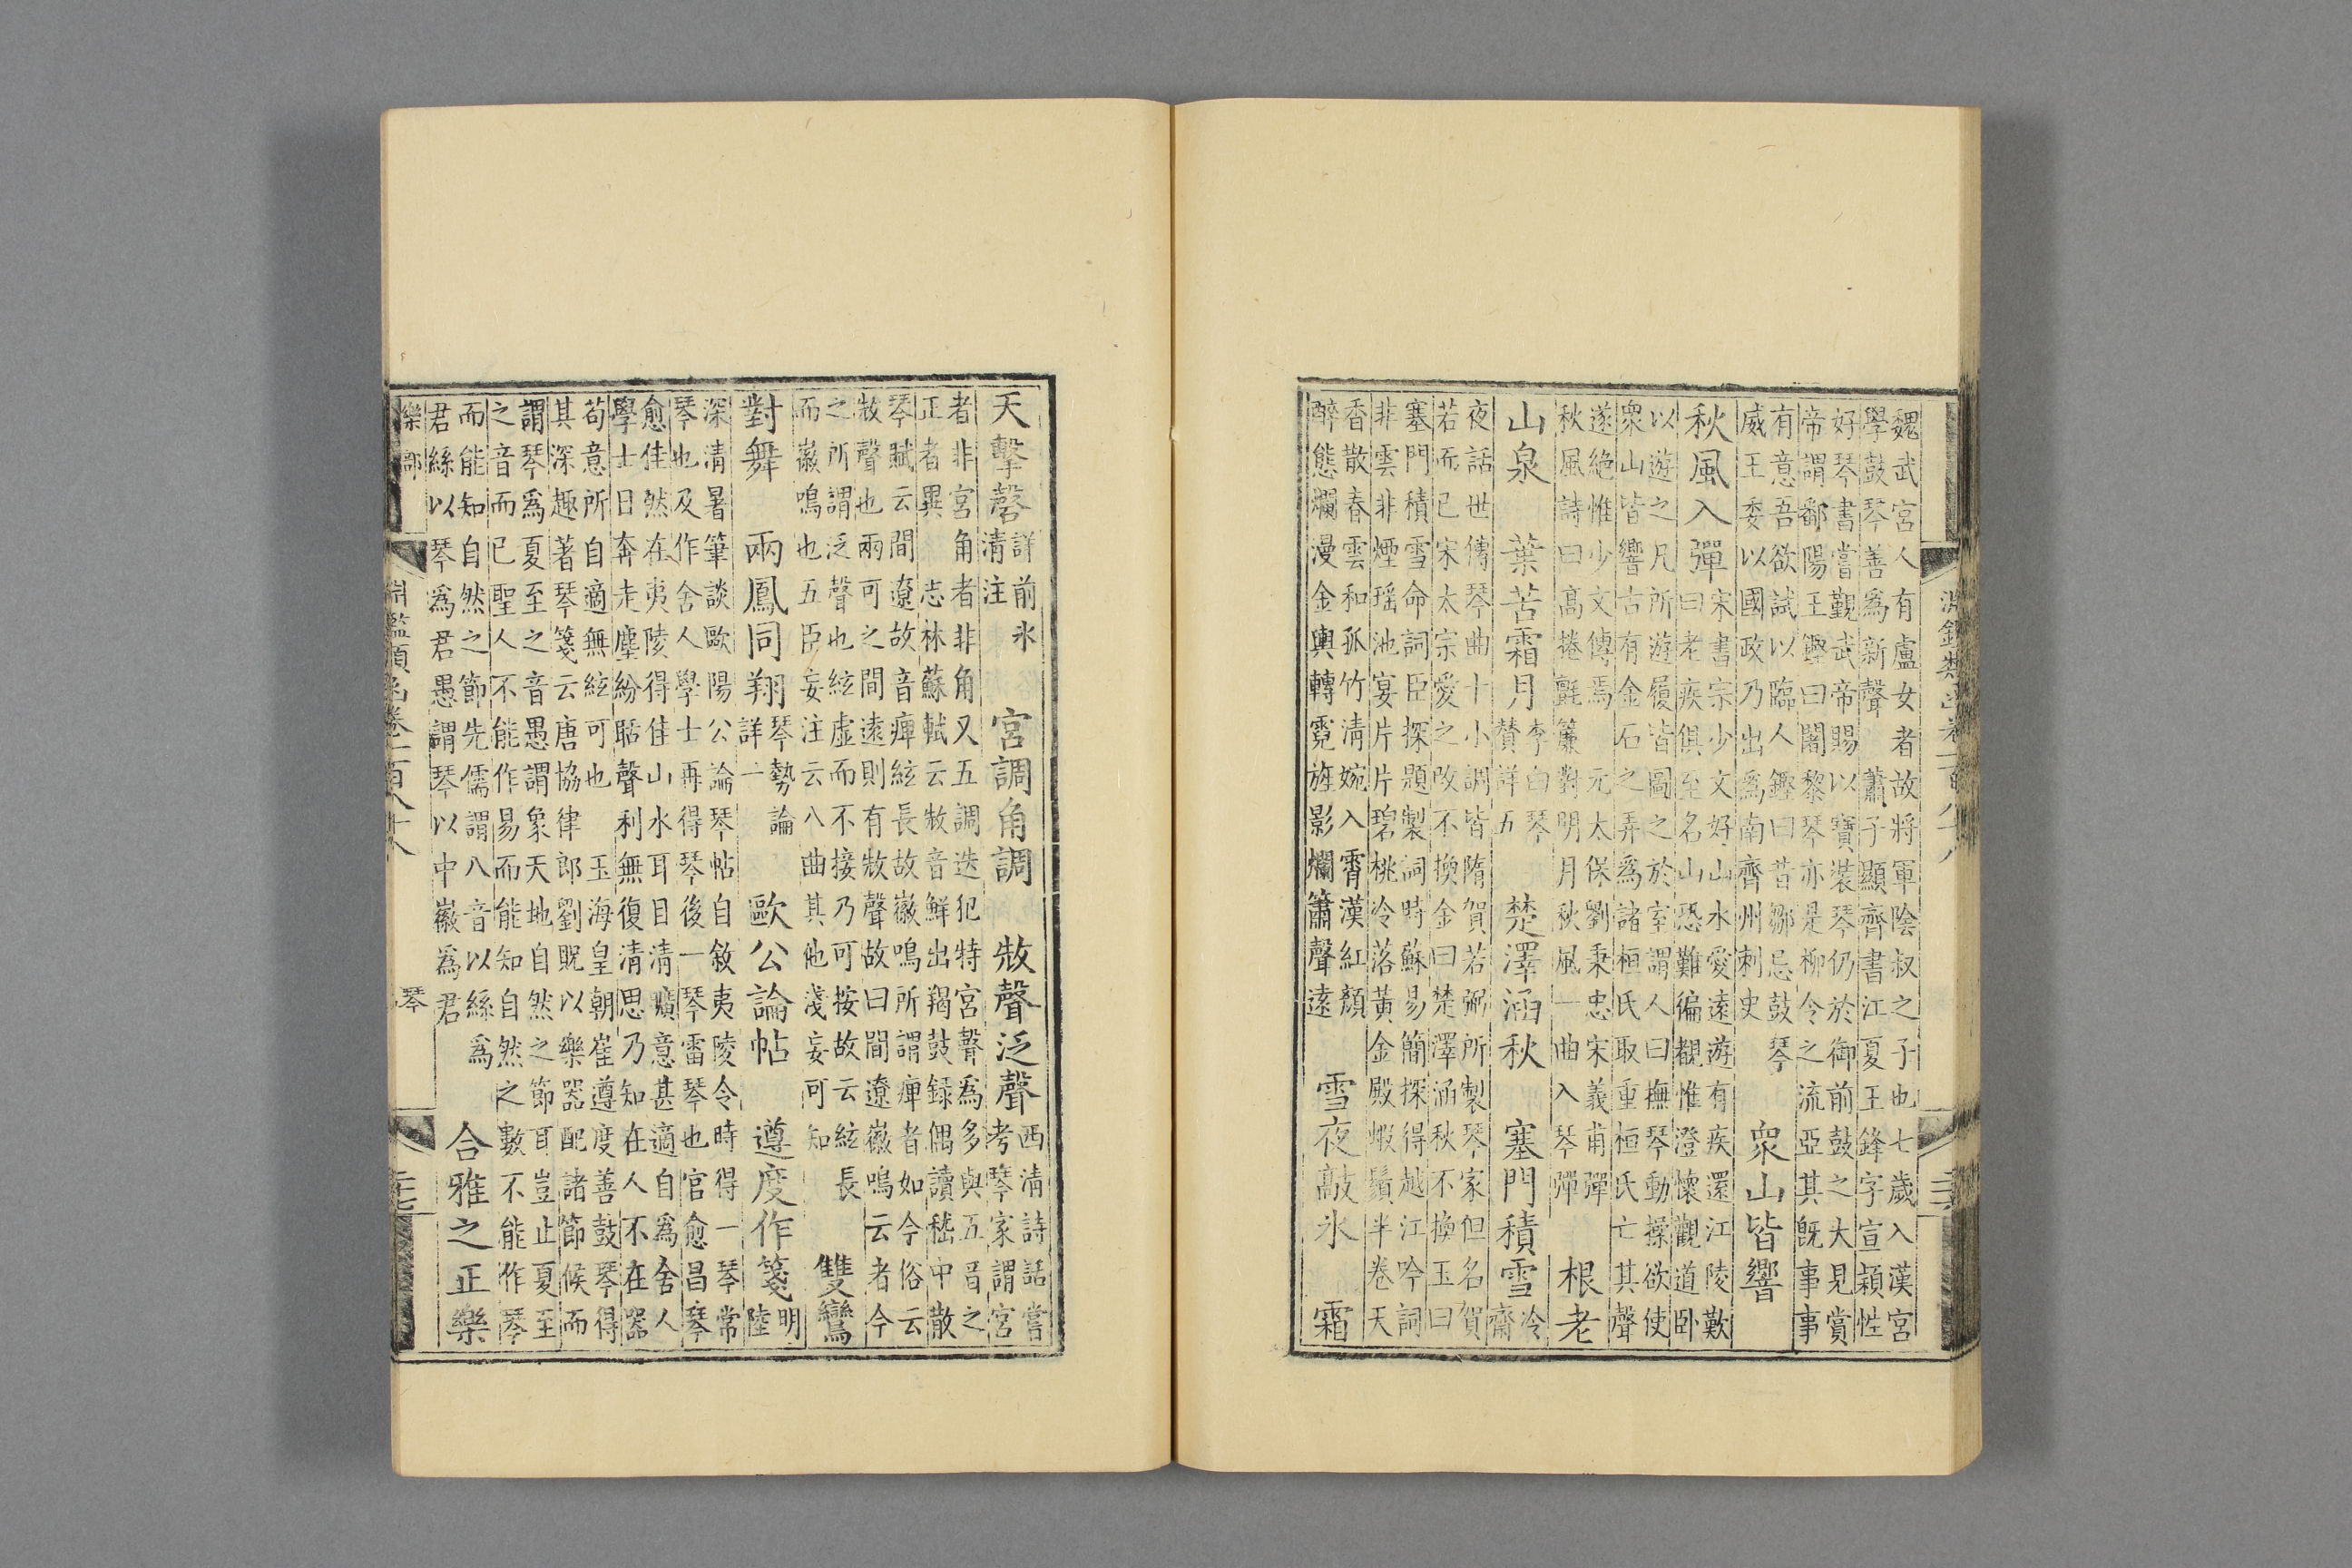 淵鑑類函卷一百八十八
魏武宮人有盧女者故將軍陰叔之子也七歲入漢宮
學鼓琴善爲新聲　蕭子顯齊書江夏王鋒字宣穎性
好琴書嘗覲武帝賜以寶裝琴仍於御前鼓之大見賞
帝謂鄱陽王鏗曰闍黎琴亦是柳令之流亞其旣事事
有意吾欲試以臨人鏗曰昔鄒忌鼓琴
威王委以國政乃出爲南齊州刺史
衆山皆響
秋風入彈
宋書宗少文好山水愛遠遊有疾還江陵歎
曰老疾俱至名山恐難徧覩惟澄懷觀道卧
以遊之凡所遊履皆圖之於室謂人曰撫琴動操欲使
衆山皆響古有金石之弄爲諸桓氏取重桓氏亡其聲
遂絶惟少文傳焉　元太保劉秉忠宋義甫彈
秋風詩曰髙捲氈簾對明月秋風一曲入琴彈
根老
山泉　葉苦霜月
李白琴
贊詳五
楚澤涵秋　塞門積雪
冷
齋
夜話世傳琴曲十小調皆隋賀若弼所製琴家但名賀
若而已宋太宗愛之改不換金曰楚澤涵秋不換玉曰
塞門積雪命詞臣探題製詞時蘇易簡探得越江吟詞
非雲非煙瑶池宴片片碧桃冷落黃金殿蝦鬚半卷天
香散春雲和孤竹清婉入霄漢紅顏
醉態爛漫金輿轉霓旌影爛簫聲遠
雪夜敲氷　霜
天擊磬
詳前氷
清注
宮調角調　敉聲泛聲
西清詩話嘗
考琴家謂宮
者非宮角者非角又五調迭犯特宮聲爲多與五音之
正者異　志林蘇軾云敉音鮮出羯鼓録偶讀嵇中散
琴賦云間遼故音痺絃長故徽鳴所謂痺者如今俗云
敉聲也兩可之間遠則有敉聲故曰間遼徽鳴云者今
之所謂泛聲也絃虚而不接乃可按故云絃長
而徽鳴也五臣妄注云八曲其他淺妄可知
雙鸞
對舞　兩鳳同翔
琴勢論
詳一
歐公論帖　遵度作箋
明
陸
深清暑筆談歐陽公論琴帖自敘夷陵令時得一琴常
琴也及作舍人學士再得琴後一琴雷琴也官愈昌琴
愈佳然在夷陵得佳山水耳目清曠意甚適自爲舍人
學士日奔走塵紛聒聲利無復清思乃知在人不在器
苟意所自適無絃可也　玉海皇朝崔遵度善鼓琴得
其深趣著琴箋云唐協律郎劉貺以樂器配諸節候而
謂琴爲夏至之音愚謂象天地自然之節耳豈止夏至
之音而已聖人不能作易而能知自然之數不能作琴
而能知自然之節先儒謂八音以絲爲
君絲以琴爲君愚謂琴以中徽爲君
合雅之正樂
樂部
淵鑑類函卷一百八十八
琴